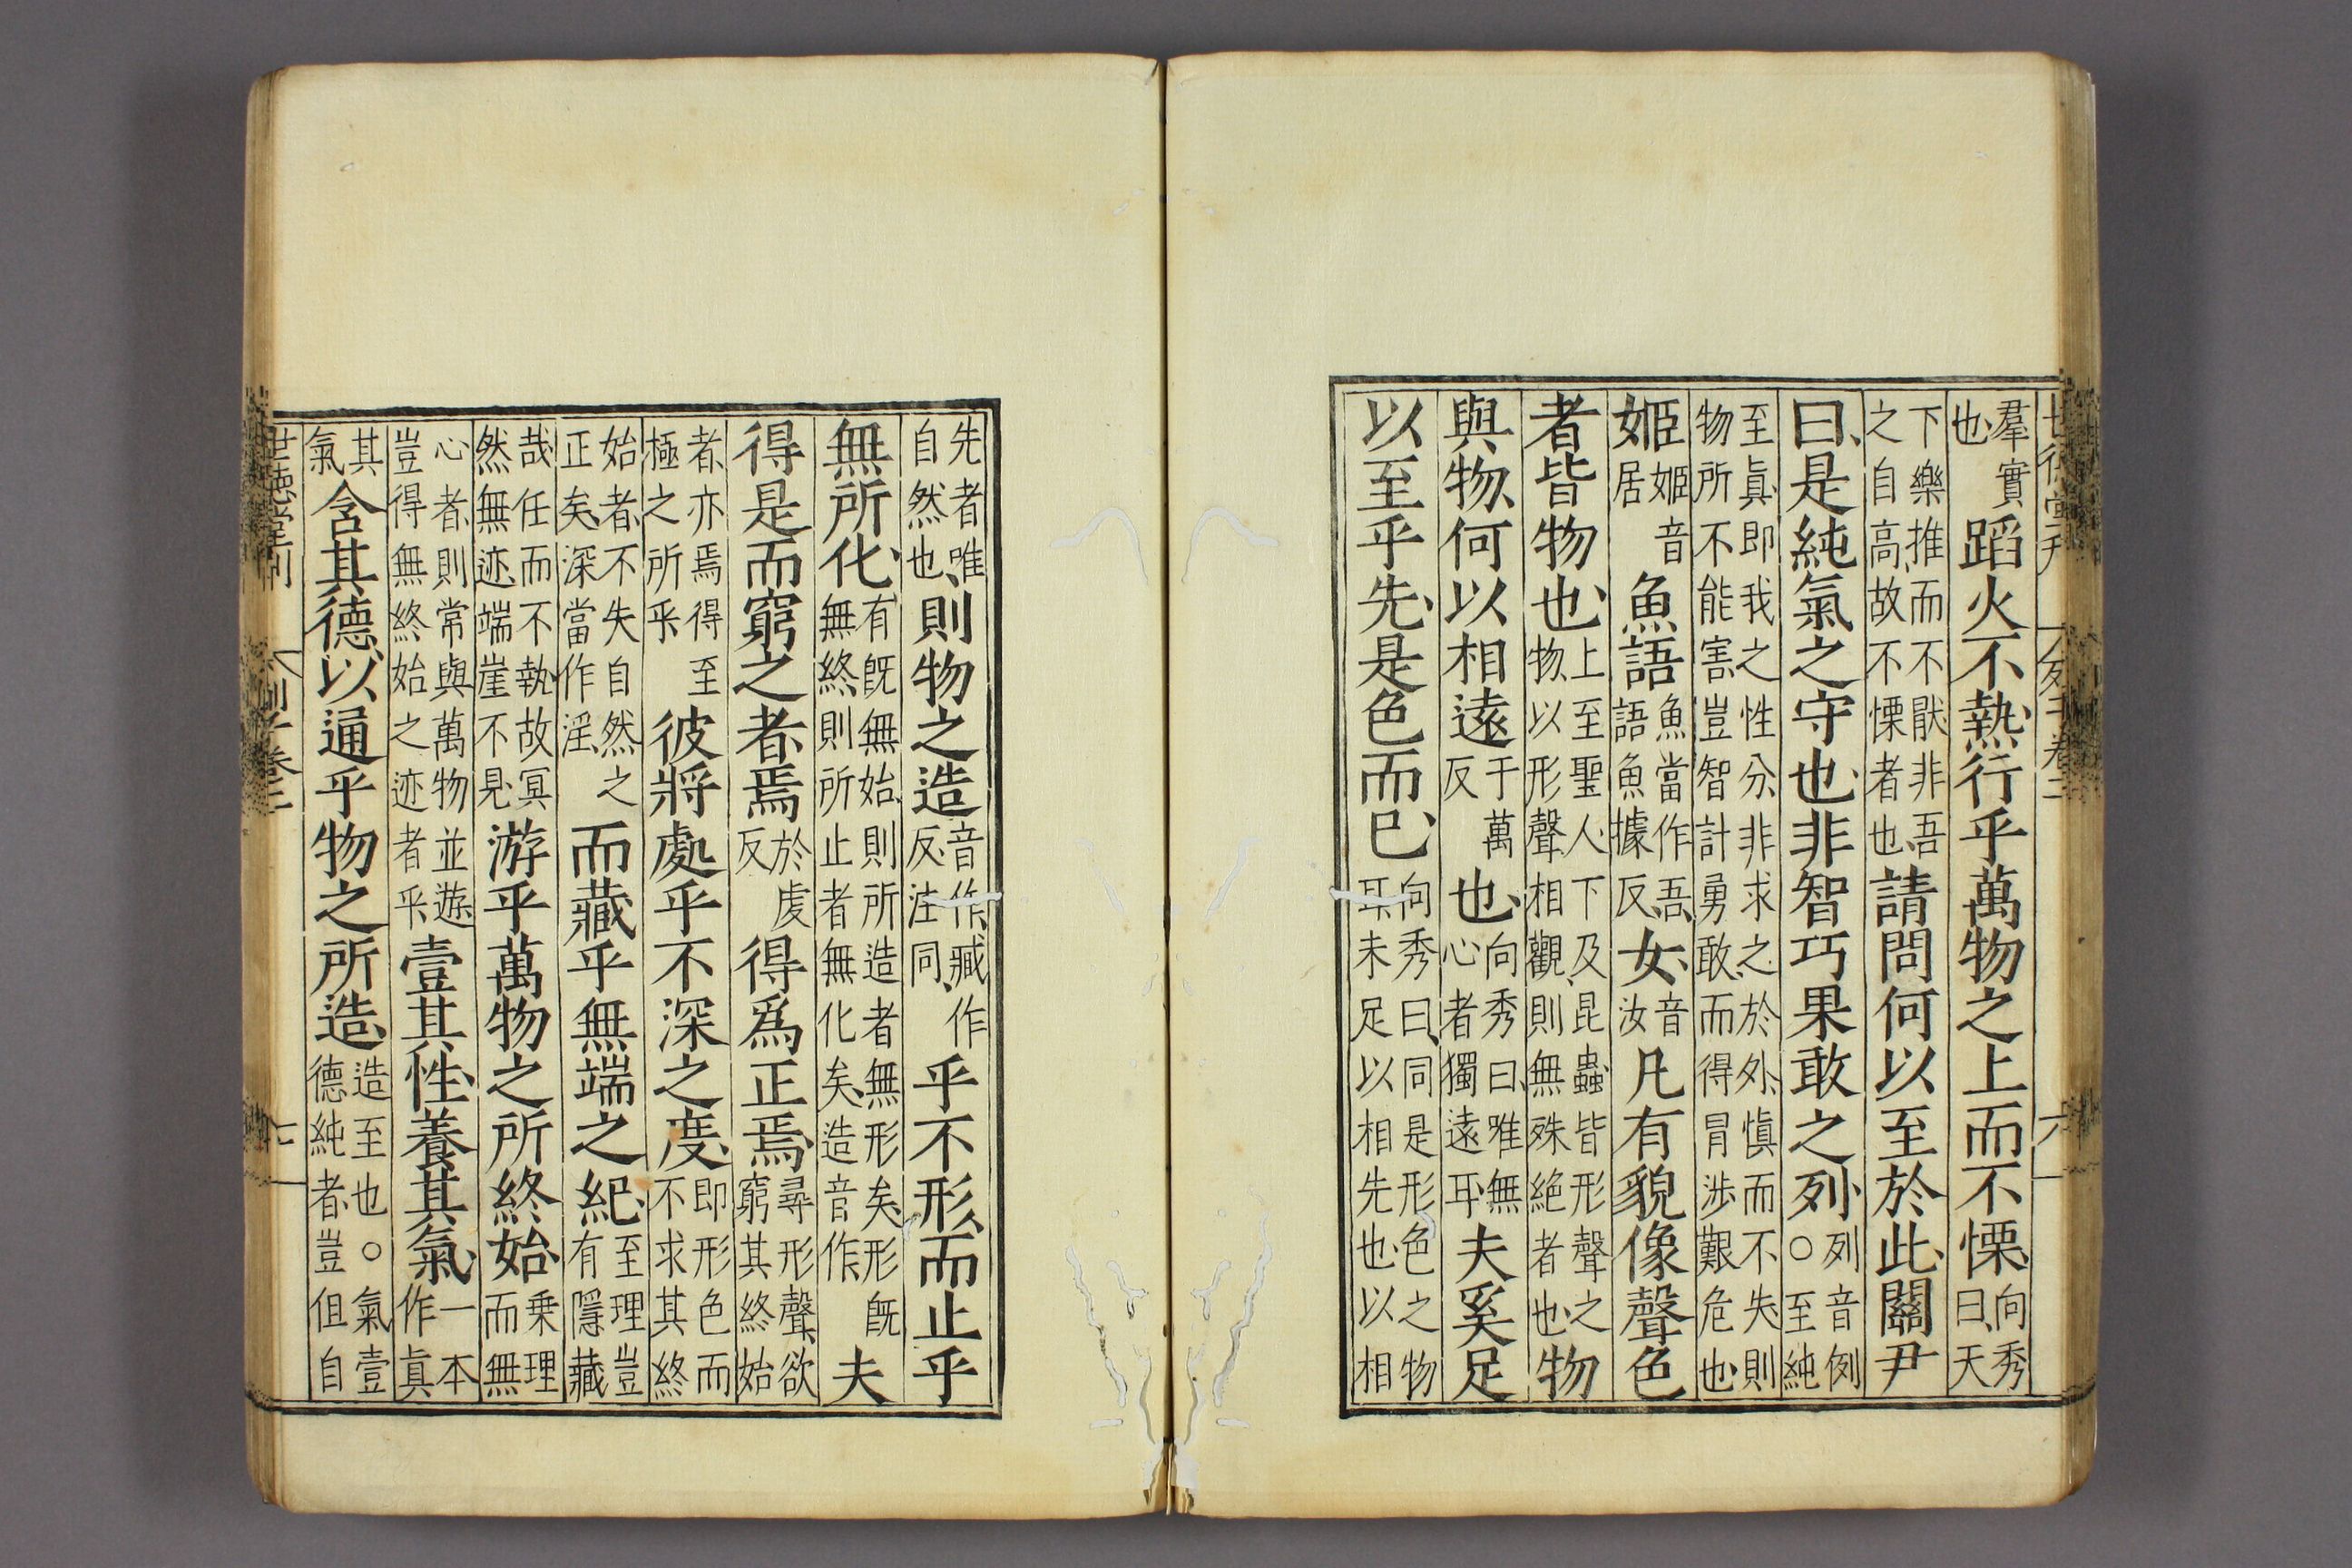 世德堂刊 列子卷二 六
羣實也蹈火不熱行乎萬物之上而不慄向秀曰天
下樂推而不厭非吾之自高故不慄者也請問何以至於此關尹
曰是純氣之守也非智巧果敢之列列音例○至純
至眞即我之性分非求之於外愼而不失則物所不能害豈智計勇敢而得冒涉艱危也
姬姬音居魚語魚當作吾語魚據反女音汝凡有貌像聲色
者皆物也上至聖人下及昆蟲皆形聲之物以形聲相觀則無殊絶者也物
與物何以相遠于萬反也向秀曰唯無心者獨遠耳夫奚足
以至乎先是色而已向秀曰同是形色之物耳未足以相先也以相
先者唯自然也則物之造音作臧作反注同乎不形而止乎
無所化有既無始則所造者無形矣形既無終則所止者無化矣造音作夫
得是而窮之者焉於虔反得爲正焉尋形聲欲窮其終始
者亦焉得至極之所乎彼將處乎不深之度即形色而不求其終
始者不失自然之正矣深當作淫而藏乎無端之紀至理豈有隱藏
哉任而不執故冥然無迹端崖不見游乎萬物之所終始乗理而無
心者則常與萬物並遊豈得無終始之迹者乎壹其性養其氣一本作眞
其氣含其德以通乎物之所造造至也○氣壹德純者豈但自
世德堂刊 列子卷二 七